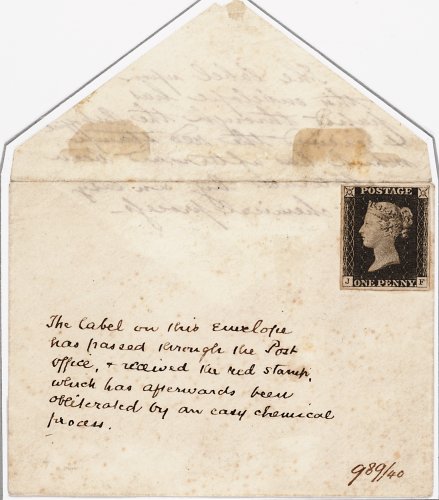 POSTAGE
J ONE PENNY F
The label on this Envelope
has passed through the Post
Office, + received the red Stamp,
which has afterwards been
obliterated by an easy chemical
process.
989/40